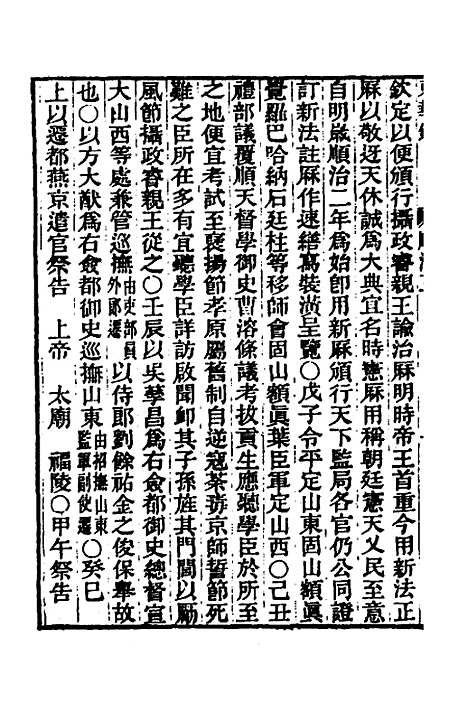 欽定以便頒行攝政睿親王諭治厤明時帝王首重今用新法正
厤以敬迓天休誠爲大典宜名時憲厤用稱朝廷憲天乂民至意
自明歲順治二年爲始卽用新厤頒行天下監局各官仍公同證
訂新法註厤作速繕寫裝潢呈覽○戊子令平定山東固山額眞
覺羅巴哈納石廷柱等移師會固山額眞葉臣軍定山西○己丑
禮部議覆順天督學御史曹溶條議考拔貢生應聽學臣於所至
之地便宜考試至襃揚節孝原屬舊制自逆寇荼毒京師誓節死
難之臣所在多有宜聽學臣詳訪啟聞卹其子孫旌其門閭以勵
風節攝政睿親王從之○壬辰以吳孳昌爲右僉都御史總督宣
大山西等處兼管巡撫由吏部員外郎遷以侍郎劉餘祐金之俊保舉故
也○以方大猷爲右僉都御史巡撫山東由招撫山東監軍副使遷○癸巳
上以遷都燕京遣官祭告 上帝 太廟 福陵○甲午祭告